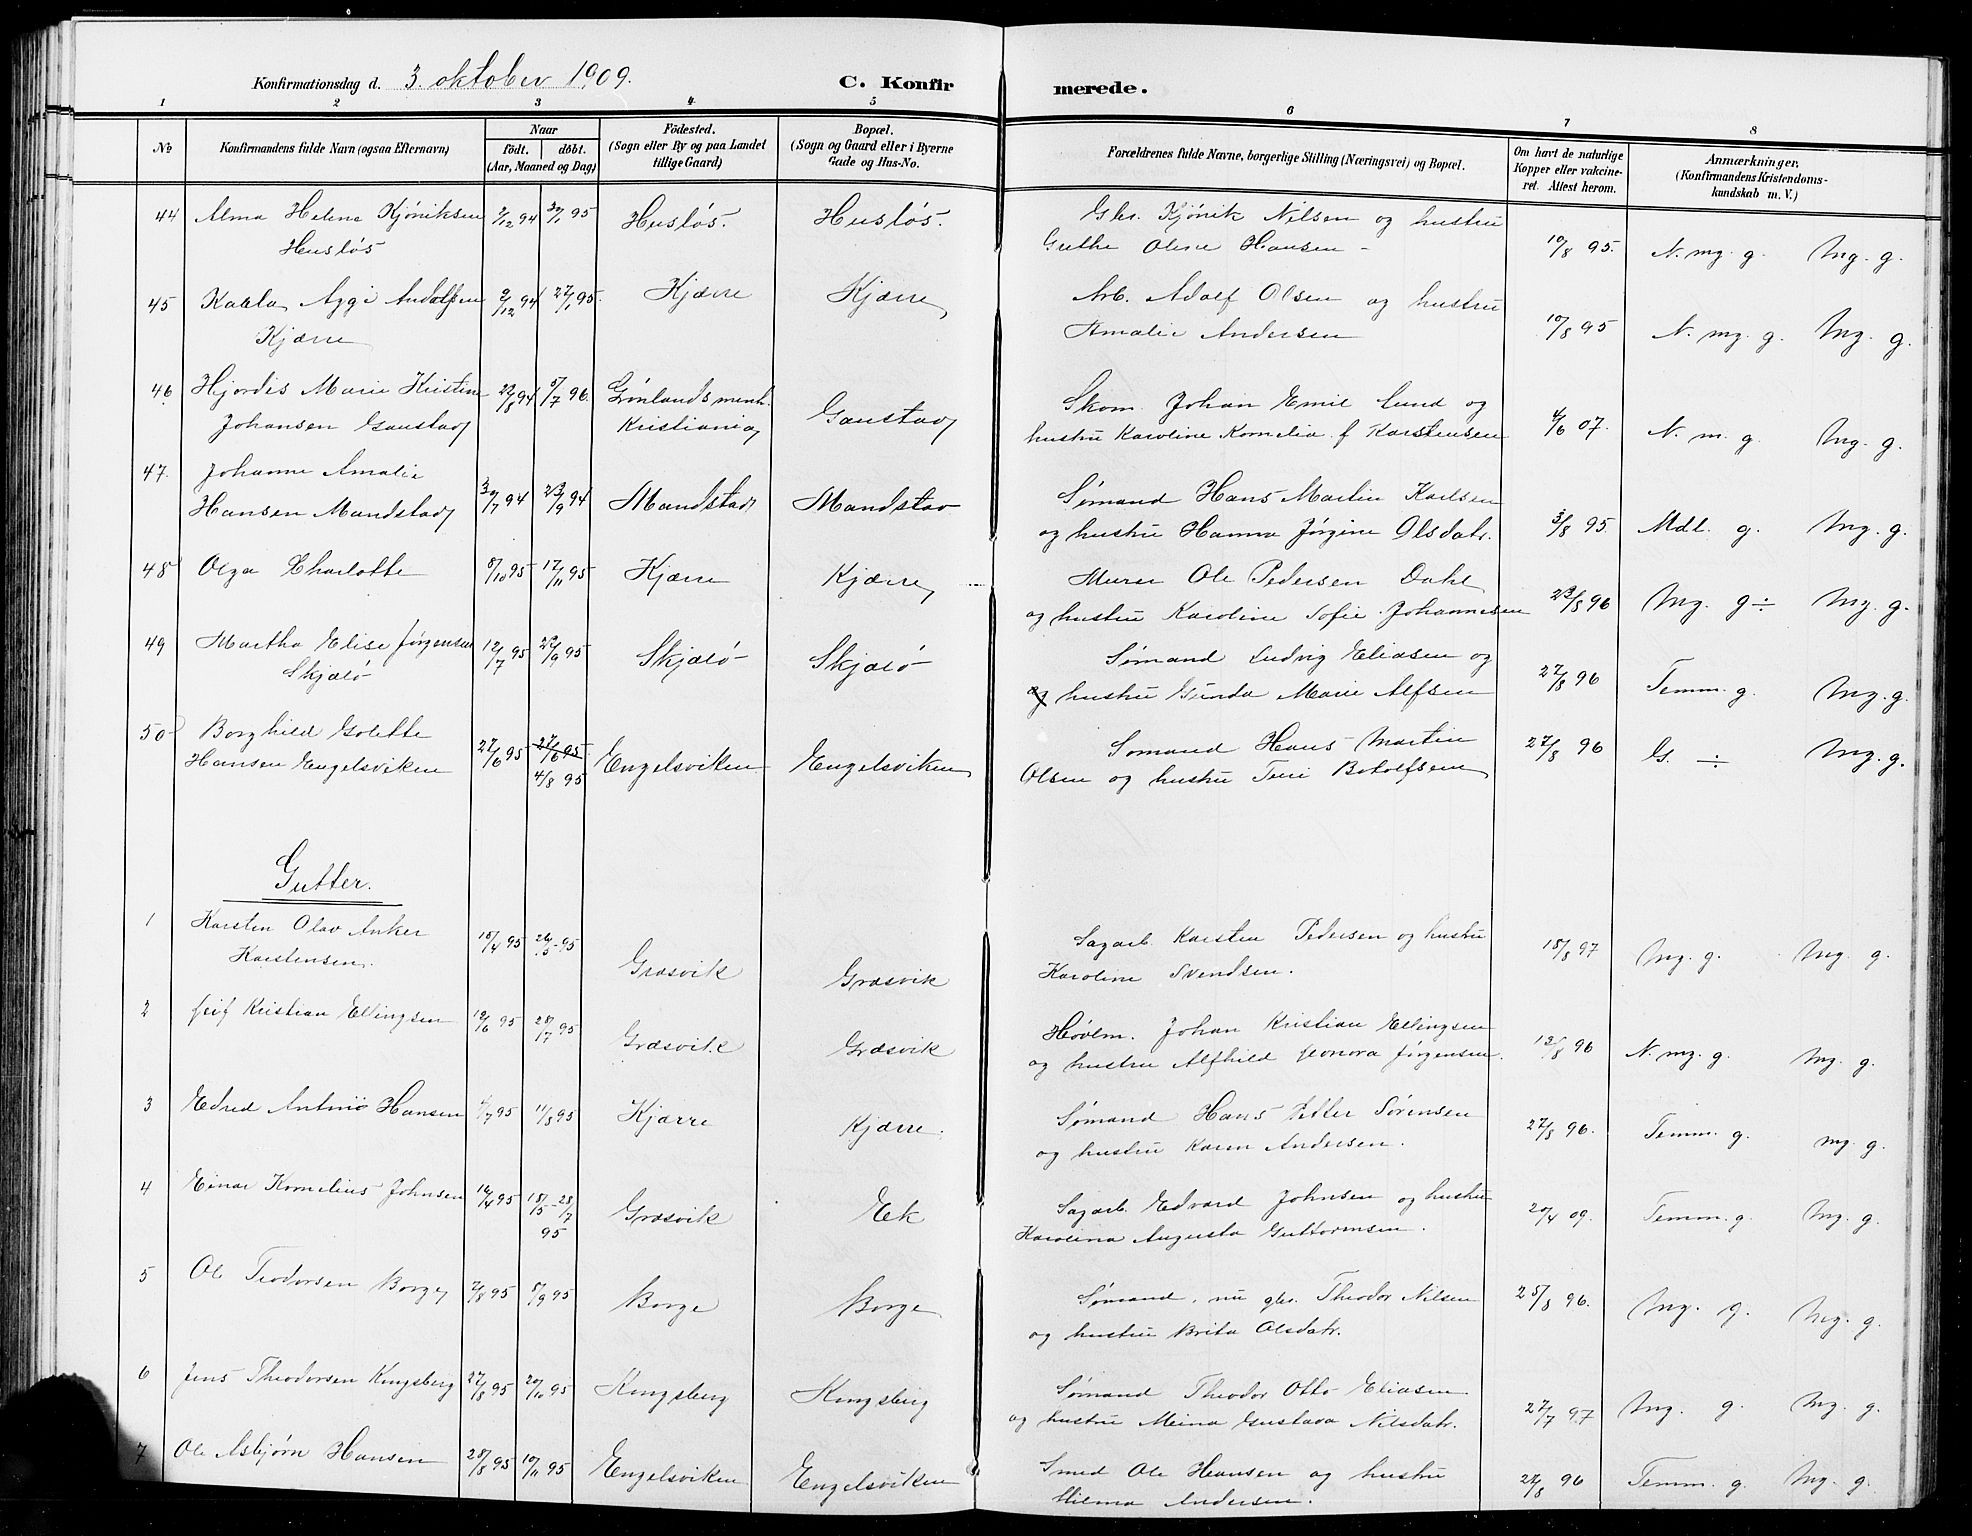 Konfirmationsdag d. 3. oktober 1909.
C. Konfirmerede.
1 2 3 4 5 6 7 8
No
Konfirmandens fulde Navn (ogsaa Efternavn)
Naar
födt. döbt.
(Aar, Maaned og Dag)
Födested.
(Sogn eller By og paa Landet
tillige Gaard)
Bopæl.
(Sogn og Gaard eller i Byerne
Gade og Hus-No.
Forældrenes fulde Navne, borgerlige Stilling (Næringsvei) og Bopæl.
Om havt de naturlige
Kopper eller vakcine-
ret. Attest herom.
Anmærkninger,
(Konfirmandens Kristendoms-
kundskab m. V.)
44 Alma Helene Kjøniksen 2/12 94 20/1 95 Husløs. Husløs. Gbr. Kjønik Nilsen og hustru
Husløs Grethe Oline Hansen - 10/8 95. N. mg. g. Mg. g.
45 Kabla Aygi Andolfsen 9/12 94 27/1 95. Kjærre Kjærre Arb. Adolf Olsen og hustru
Kjærre Amalie Andersen 10/8 95 N. mg. g. Mg. g.
46. Hjordis Marie Kristine 22/8 94 5/7 96. Grønlands menh. Gaustad Skom. Johan Emil Lund og
Johansen Gaustad Kristiania hustru Karoline Kornelia f Karstensen 4/6 07. N. m. g. Mg. g.
47. Johanne Amalie
Hansen Mandstad 30/7 94 23/9 94 Mandstad Mandstad Sømand Hans Martin Karlsen
og hustru Hanna Jørgine Olsdatr. 3/8 95. Mdl. g. Mg. g.
48 Olga Charlotte 5/10 95 17/11 95 Kjærre Kjærre Murer Ole Pedersen Dahl
og hustru Karoline Sofie Johannesen 29/8 96 Mg. g ÷ Mg. g.
49 Martha Elise Jørgensen 12/7 95 22/9 95 Skjælø Skjælø Sømand Ludvig Eliasen og
Skjælø og hustru Gunda Marie Alfsen 27/8 96 Temm. g. Mg. g.
50 Borghild Golette
Hansen Engelsviken 27/6 95 27/6 95 4/8 95 Engelsviken Engelsviken Sømand Hans Martin
Olsen og hustru Turi Botolfsen 27/8 96 G. ÷ Mg. g.
Gutter.
1 Karsten Olav Anker
Karstensen. 15/4 95 26/5 95 Græsvik Græsvik Sagarb. Karsten Pedersen og hustru
Karoline Svendsen. 18/8 97 Mg. g. Mg. g.
2 Leif Kristian Ellingsen 12/6 95 28/7 95 Græsvik Græsvik Høvlm. Johan Kristian Ellingsen
og hustru Alfhild Leonora Jørgensen. 12/8 96 N. mg. g. Mg. g.
3 Edred Antino Hansen 4/7 95 11/8 95 Kjærre Kjærre. Sømand Hans Petter Sørensen
og hustru Karen Andersen. 27/8 96. Temm. g. mg. g.
4 Einar Kornelius Johnsen 16/4 95 18/5 - 28/7 95 Græsvik Ek Sagarb. Edvard Johnsen og hustru
Karolina Augusta Guttormsen. 20/4 09. Temm. g. Mg. g.
5 Ole Teodorsen Borge 7/8 95 8/9 95 Borge Borge Sømand, nu gbr. Theodor Nilsen
og hustru Brita Olsdatr. 25/8 96. Mg. g. Mg. g.
6 Jens Theodorsen Kongsberg 27/8 95 20/10 95 Kongsberg Kongsberg Sømand Theodor Otto Eliasen
og hustru Meina Gustava Nilsdatr. 27/7 97 Mg. g. Mg. g.
7 Ole Asbjørn Hansen 28/8 95 10/11 95 Engelsviken Engelsviken Smed Ole Hansen og hustru
Hilma Andersen. 27/8 96 Temm. g. Mg. g.